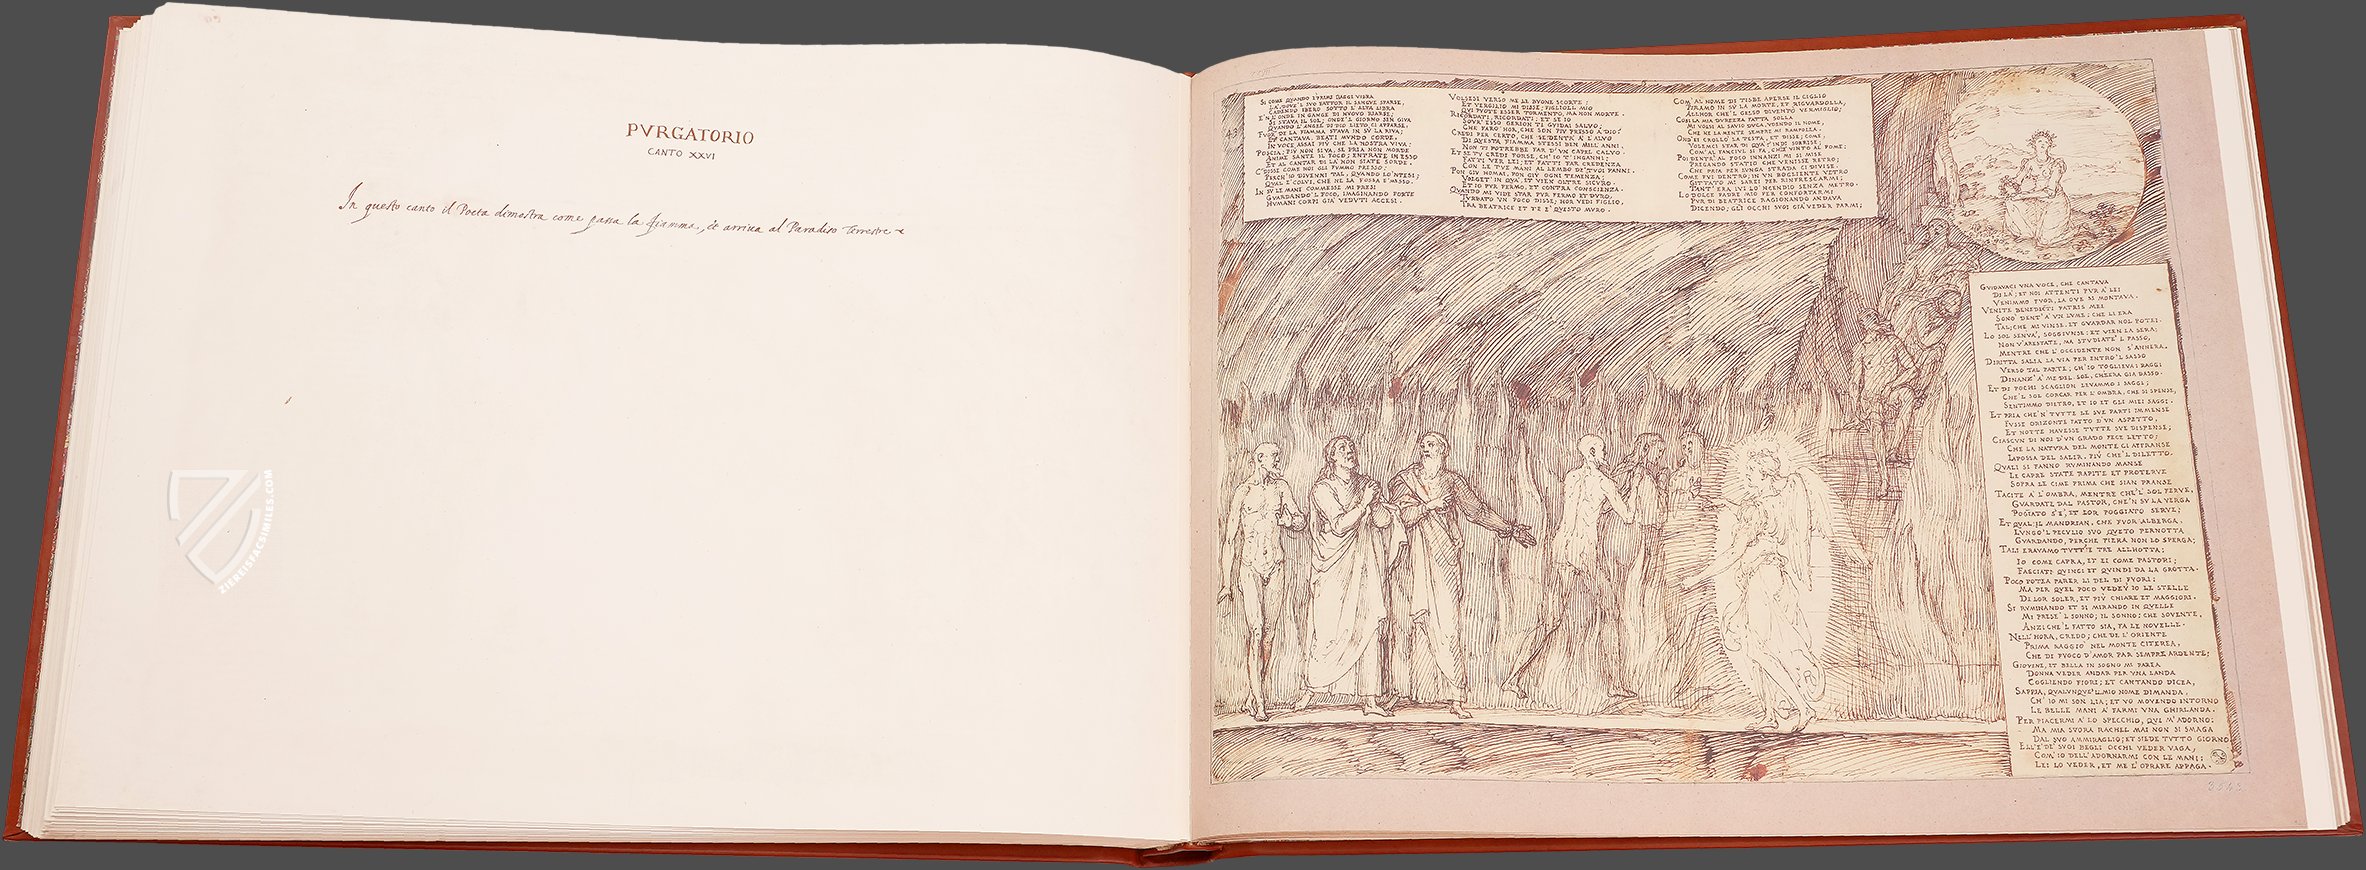 PVRGATORIO
CANTO XXVI
In questo canto il Poeta dimostra come passa la fiamma, et arriua al Paradiso Terrestre
ZIEREISFACSIMILES.COM
SI COME QUANDO I PRIMI RAGGI VIBRA
LÀ, DOVE'L SVO FATTOR IL SANGVE SPARSE,
CADENDO IBERO SOTTO L'ALTA LIBRA
E'N L'ONDE IN GANGE DI NVOVO RIARSE;
SI STAVA IL SOL; ONDE'L GIORNO SEN GIVA
QVANDO L'ANGEL DI DIO LIETO CI APPARSE.
FVOR DE LA FIAMMA STAVA IN SV LA RIVA;
ET CANTAVA, BEATI MVNDO CORDE,
IN VOCE ASSAI PIV CHE LA NOSTRA VIVA:
POSCIA; PIV NON SI VA, SE PRIA NON MORDE
ANIME SANTE IL FOCO; ENTRATE IN ESSO
ET AL CANTAR DI LA NON SIATE SORDE.
C'DISSE COME NOI GLI FVMMO PRESSO:
PERCH'IO DIVENNI TAL, QVANDO LO'NTESI;
QVAL'E COLVI, CHE NE LA FOSSA E' MESSO.
IN SV LE MANI COMMESSE MI PRESI
GVARDANDO'L FOCO, IMAGINANDO FORTE
HVMANI CORPI GIÀ VEDVTI ACCESI.
VOLSESI VERSO ME LE BVONE SCORTE;
ET VERGILIO MI DISSE; FIGLIOL MIO
QVI PVOTE ESSER TORMENTO, MA NON MORTE.
RICORDATI, RICORDATI; ET SE IO
SOVR'ESSO GERION TI GVIDAI SALVO;
CHE FARO HOR, CHE SON PIV PRESSO A DIO?
CREDI PER CERTO, CHE SE DENTR'A L'ALVO
DI QVESTA FIAMMA STESSI BEN MILL'ANNI,
NON TI POTREBBE FAR D'VN CAPEL CALVO.
ET SE TV CREDI FORSE, CH'IO T'INGANNI;
FATTI VER LEI; ET FATTI FAR CREDENZA
CON LE TVE MANI AL LEMBO DE'TVOI PANNI.
PON GIV HOMAI, PON GIV OGNI TEMENZA;
VOLGET'IN QVA, ET VIEN OLTRE SICVRO.
ET IO PVR FERMO, ET CONTRA CONSCIENZA.
QVANDO MI VIDE STAR PVR FERMO ET DVRO,
TVRBATO VN POCO DISSE; HOR VEDI FIGLIO,
TRA BEATRICE ET TE E' QVESTO MVRO.
COM'AL NOME DI TISBE APERSE IL CIGLIO
PIRAMO IN SV LA MORTE, ET RIGVARDOLLA,
ALLHOR CHE'L GELSO DIVENTO VERMIGLIO;
COSI LA MIA DVREZZA FATTA SOLLA
MI VOLSI AL SAVIO DVCA VDENDO IL NOME,
CHE NE LA MENTE SEMPRE MI RAMPOLLA.
OND'EI CROLLO' LA TESTA, ET DISSE; COME,
VOLEMCI STAR DI QVA? INDI SORRISE;
COM'AL FANCIVL SI FA, CH'E' VINTO AL POME;
POI DENTR'AL FOCO INNANZI MI SI MISE
PREGANDO STATIO CHE VENISSE RETRO;
CHE PRIA PER LVNGA STRADA CI DIVISE.
COME FVI DENTRO; IN VN BOGLIENTE VETRO
GITTATO MI SAREI PER RINFRESCARMI;
TANT'ERA IVI LO'NCENDIO SENZA METRO.
LO DOLCE PADRE MIO PER CONFORTARMI
PVR DI BEATRICE RAGIONANDO ANDAVA
DICENDO; GLI OCCHI SVOI GIÀ VEDER PARMI;
GVIDAVACI VNA VOCE, CHE CANTAVA
DI LÀ; ET NOI ATTENTI PVR A' LEI
VENIMMO FVOR, LA OVE SI MONTAVA.
VENITE BENEDICTI PATRIS MEI
SONO' DENT'A' VN LVME; CHE LI ERA
TAL; CHE MI VINSE, ET GVARDAR NOL POTEI.
LO SOL SEN VA', SOGGIVNSE; ET VIEN LA SERA;
NON V'ARESTATE, MA STVDIATE'L PASSO,
MENTRE CHE L'OCCIDENTE NON S'ANNERA.
DIRITTA SALIA LA VIA PER ENTRO'L SASSO
VERSO TAL PARTE; CH'IO TOGLIEVA I RAGGI
DINANZ'A' ME DEL SOL, CH'ERA GIA BASSO.
ET DI POCHI SCAGLION LEVAMMO I SAGGI;
CHE'L SOL CORCAR PER L'OMBRA, CHE SI SPENSE,
SENTIMMO DIETRO, ET IO ET GLI MIEI SAGGI.
ET PRIA CHE'N TVTTE LE SVE PARTI IMMENSE
FVSSE ORIZONTE FATTO D'VN ASPETTO,
ET NOTTE HAVESSE TVTTE SVE DISPENSE;
CIASCVN DI NOI D'VN GRADO FECE LETTO;
CHE LA NATVRA DEL MONTE CI AFFRANSE
LA POSSA DEL SALIR, PIV CHE'L DILETTO.
QVALI SI FANNO RVMINANDO MANSE
LE CAPRE STATE RAPITE ET PROTERVE
SOPRA LE CIME PRIMA CHE SIAN PRANSE
TACITE A L'OMBRA, MENTRE CHE'L SOL FERVE,
GVARDATE DAL PASTOR, CHE'N SV LA VERGA
POGIATO S'E', ET LOR POGGIATO SERVE;
ET QVAL IL MANDRIAN, CHE FVOR ALBERGA,
LVNGO'L PECVLIO SVO QVETO PERNOTTA
GVARDANDO, PERCHE FIERA NON LO SPERGA;
TALI ERAVAMO TVTT'E TRE ALLHOTTA;
IO COME CAPRA, ET EI COME PASTORI;
FASCIATI QVINCI ET QVINDI DA LA GROTTA.
POCO POTEA PARER LI DEL DI FVORI;
MA PER QVEL POCO VEDEV'IO LE STELLE
DI LOR SOLER, ET PIV CHIARE ET MAGGIORI.
SI RVMINANDO ET SI MIRANDO IN QVELLE
MI PRESE'L SONNO; IL SONNO; CHE SOVENTE,
ANZI CHE'L FATTO SIA, FA LE NOVELLE.
NELL'HORA, CREDO; CHE DE L'ORIENTE
PRIMA RAGGIO NEL MONTE CITEREA,
CHE DI FVOCO D'AMOR PAR SEMPRE ARDENTE;
GIOVINE, ET BELLA IN SOGNO MI PAREA
DONNA VEDER ANDAR PER VNA LANDA
COGLIENDO FIORI; ET CANTANDO DICEA,
SAPPIA, QVALVNQVE'L MIO NOME DIMANDA,
CH'IO MI SON LIA; ET VO MOVENDO INTORNO
LE BELLE MANI A' FARMI VNA GHIRLANDA.
PER PIACERMI A' LO SPECCHIO, QVI M'ADORNO:
MA MIA SVORA RACHEL MAI NON SI SMAGA
DAL SVO AMMIRAGLIO; ET SIEDE TVTTO GIORNO
ELL'E' DE' SVOI BEGLI OCCHI VEDER VAGA,
COM'IO DELL'ADORNARMI CON LE MANI;
LEI LO VEDER, ET ME L'OPRARE APPAGA.